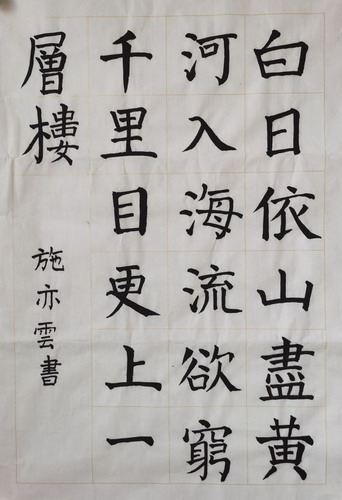 白日依山盡黄
河入海流欲窮
千里目更上一
層樓
施亦雲書